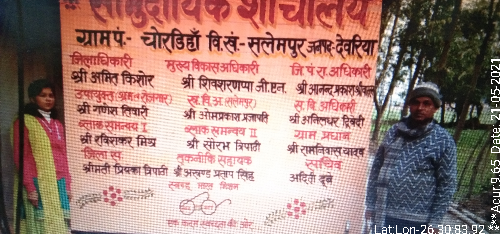 सामुदायिक शौचालय
ग्राम पं०- चोरडिहाँ वि.खं०- सलेमपुर जनपद- देवरिया
जिलाधिकारी मुख्य विकास अधिकारी जि.पं.रा.अधिकारी
श्री अमित किशोर श्री शिवशरणप्पा जी.एन. श्री आनन्द प्रकाश श्रीवास्तव
उपायुक्त (श्रम व रोजगार) ख.वि.अ.(सलेमपुर) स.वि.अधिकारी
श्री गणेश तिवारी श्री ओमप्रकाश प्रजापति श्री अनिलधर द्विवेदी
ब्लाक समन्वय I ब्लाक समन्वय II ग्राम प्रधान
श्री रविशंकर मिश्र श्री सौरभ त्रिपाठी श्री रामनिवास यादव
जिला स. तकनीकि सहायक सचिव
श्रीमती प्रियंका त्रिपाठी श्री अखण्ड प्रताप सिंह अदिती दूबे
स्वच्छ भारत मिशन
एक कदम स्वच्छता की ओर
Lat:Lon-26.30:83.92
***Acur:9.65 Date: 21-05-2021